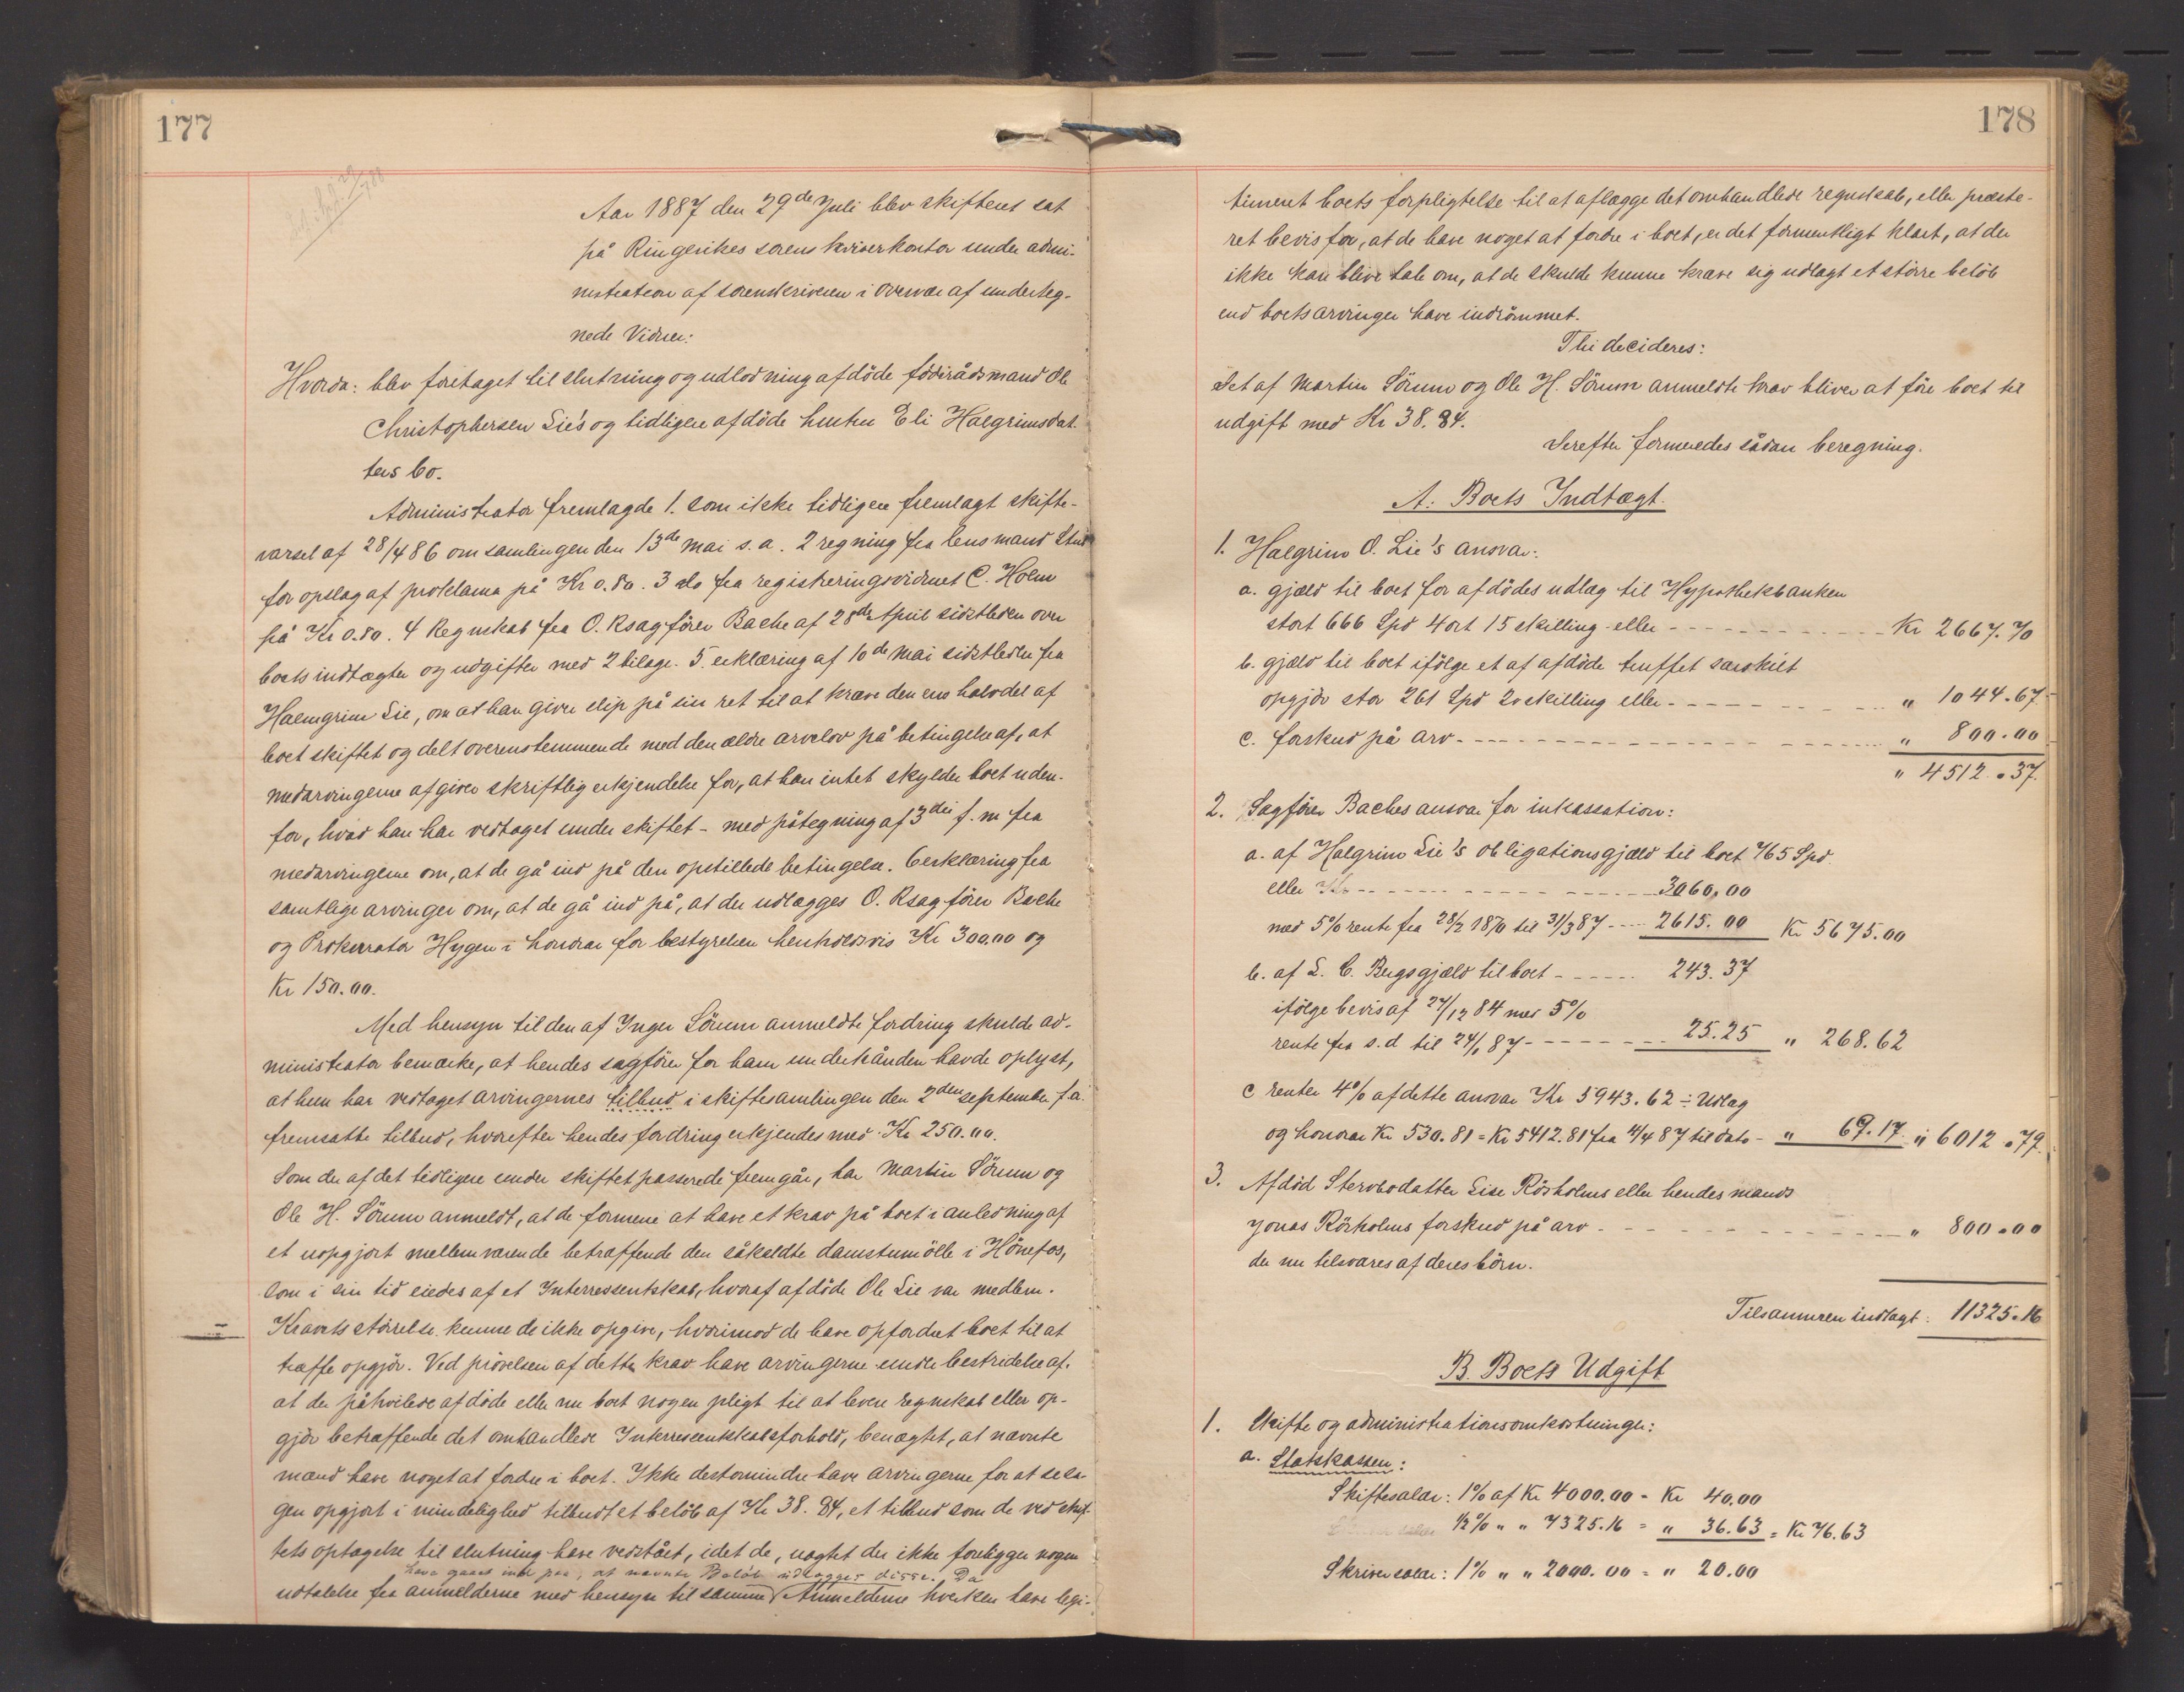 177
Aar 1887 den 29de Juli blev skifteret sat
på Ringerikes sorenskriverkontor under admi-
nistration af sorenskriveren i overvær af underteg-
nede Vidner:
Hvorda: blev foretaget til slutning og udlodning afdöde föderådsmand Ole
Christophersen Lie's og tidligere afdöde hustru Eli Halgrimsdat-
ters bo.
Administrator fremlagde 1. som ikke tidligere fremlagt skifte-
varsel af 28/4 86 om samlingen den 13de mai s.a. 2 regning fra lensmand
for opslag af proklama på Kr 0.80. 3 do fra registreringsvidnet C. Holm
på Kr 0.80. 4 Regnskab fra O. Rsagförer Bache af 28de April sidstleden over
boets indtægter og udgifter med 2 bilage. 5. erklæring af 10de mai sidstleden fra
Halmgrim Lie, om at han giver slip på sin ret til at kræve den ene halvdel af
boet skiftet og delt overensstemmende med den ældre arvelov på betingelse af, at
medarvingerne afgiver skriftlig erkjendelse for, at han intet skylder boet uden-
for, hvad han har vedtaget under skiftet - med påtegning af 3die f.m fra
medarvingerne om, at de gå ind på den opstillede betingelse. 6 erklæring fra
samtlige arvinger om, at de gå ind på, at der udlægges O. Rsagförer Bache
og Prokurator Hygen i honorar for bestyrelsen henholdsvis Kr 300.00 og
Kr 150.00.
Med hensyn til den af Inger Sörum anmeldte fordring skulde ad-
ministrator bemærke, at hendes sagförer for ham underhånden havde oplyst,
at hun har vedtaget arvingernes tilbud i skiftesamlingen den 2den september f.a.
fremsatte tilbud, hvorefter hendes fordring erkjendes med Kr 250.00.
Som der af det tidligere under skiftet passerede fremgår, har Martin Sörum og
Ole H. Sörum anmeldt, at de formene at have et krav på boet i anledning af
et uopgjort mellemværende betræffende den såkaldte damstumölle i Hönefos,
som i sin tid eiedes af et Interressentskab, hvoraf afdöde Ole Lie var medlem.
Kravets störrelse kunne de ikke opgive, hvorimod de have opfordret boet til at
træffe opgjör. Ved prövelsen af dette krav have arvingerne under bestridelse af,
at der påhvilede afdöde eller nu boet nogen pligt til at levere regnskab eller op-
gjör betræffende det omhandlede Interressentskabsforhold, benægtet, at nævnte
mænd have noget at fordre i boet. Ikke destomindre have arvingerne for at se sa-
gen opgjort i mindelighed tilbudt et belöb af Kr 38.84, et tilbud som de ved skif-
tets optagelse til slutning have vedstået, idet de, uagtet der ikke foreligger nogen
have gaaet ind paa, at nævnte Belöb udlægges disse. Da
udtalelse fra anmelderne med hensyn til samme Anmelderne hverken have legi-
178
timeret boets forpligtelse til at aflægge det omhandlede regnskab, eller præste-
ret bevis for, at de have noget at fordre i boet, er det formentligt klart, at der
ikke kan blive tale om, at de skulde kunne kræve sig udlagt et större belöb
end boets arvinger have indrömmet.
Thi decideres:
Det af Martin Sörum og Ole H. Sörum anmeldte krav bliver at före boet til
udgift med Kr 38.84.
Derefter formeredes sådan beregning.
A. Boets Indtægt.
1. Halgrim O. Lie's ansvar:
a. gjæld til boet for afdödes udlæg til Hypothekbanken
stort 666 Spd 4 ort 15 skilling eller - - - Kr 2667.70
b. gjæld til boet ifölge et af afdöde truffet særskilt
opgjör stor 261 Spd 20 skilling eller - - - " 1044.67
c. forskud på arv - - - " 800.00
" 4512.37.
2. Sagförer Baches ansvar for inkassation:
a. af Halgrim Lie's obligationsgjæld til boet 765 Spd.
eller Kr - - - 3060.00
med 5% rente fra 28/2 1870 til 31/3 87 - - 2615.00 Kr 5675.00
b. af L. C. Bugsgjæld til boet - - - 243.37
ifölge bevis af 24/12 84 med 5%
rente fra s.d til 24/1 87 - - - 25.25 " 268.62
c renter 4% af dette ansvar Kr 5943.62 ÷ Udlæg
og honorar Kr 530.81 = Kr 5412.81 fra 4/4 87 til dato - " 69.17 " 6012.79.
3. Afdöd Stervbodatter Lise Rörholms eller hendes mands
Jonas Rörholms forskud på arv - - - " 800.00
der nu tilsvares af deres börn.
Tilsammen indtægt: 11325.16
B. Boets Udgift
1. Skifte og administrationsomkostninger:
a. Statskassen:
Skiftesalær: 1% af Kr 4000.00 = Kr 40.00
½% " " 7325.16 = " 36.63 = Kr 76.63
Skriversalær: 1% " " 2000.00 = " 20.00